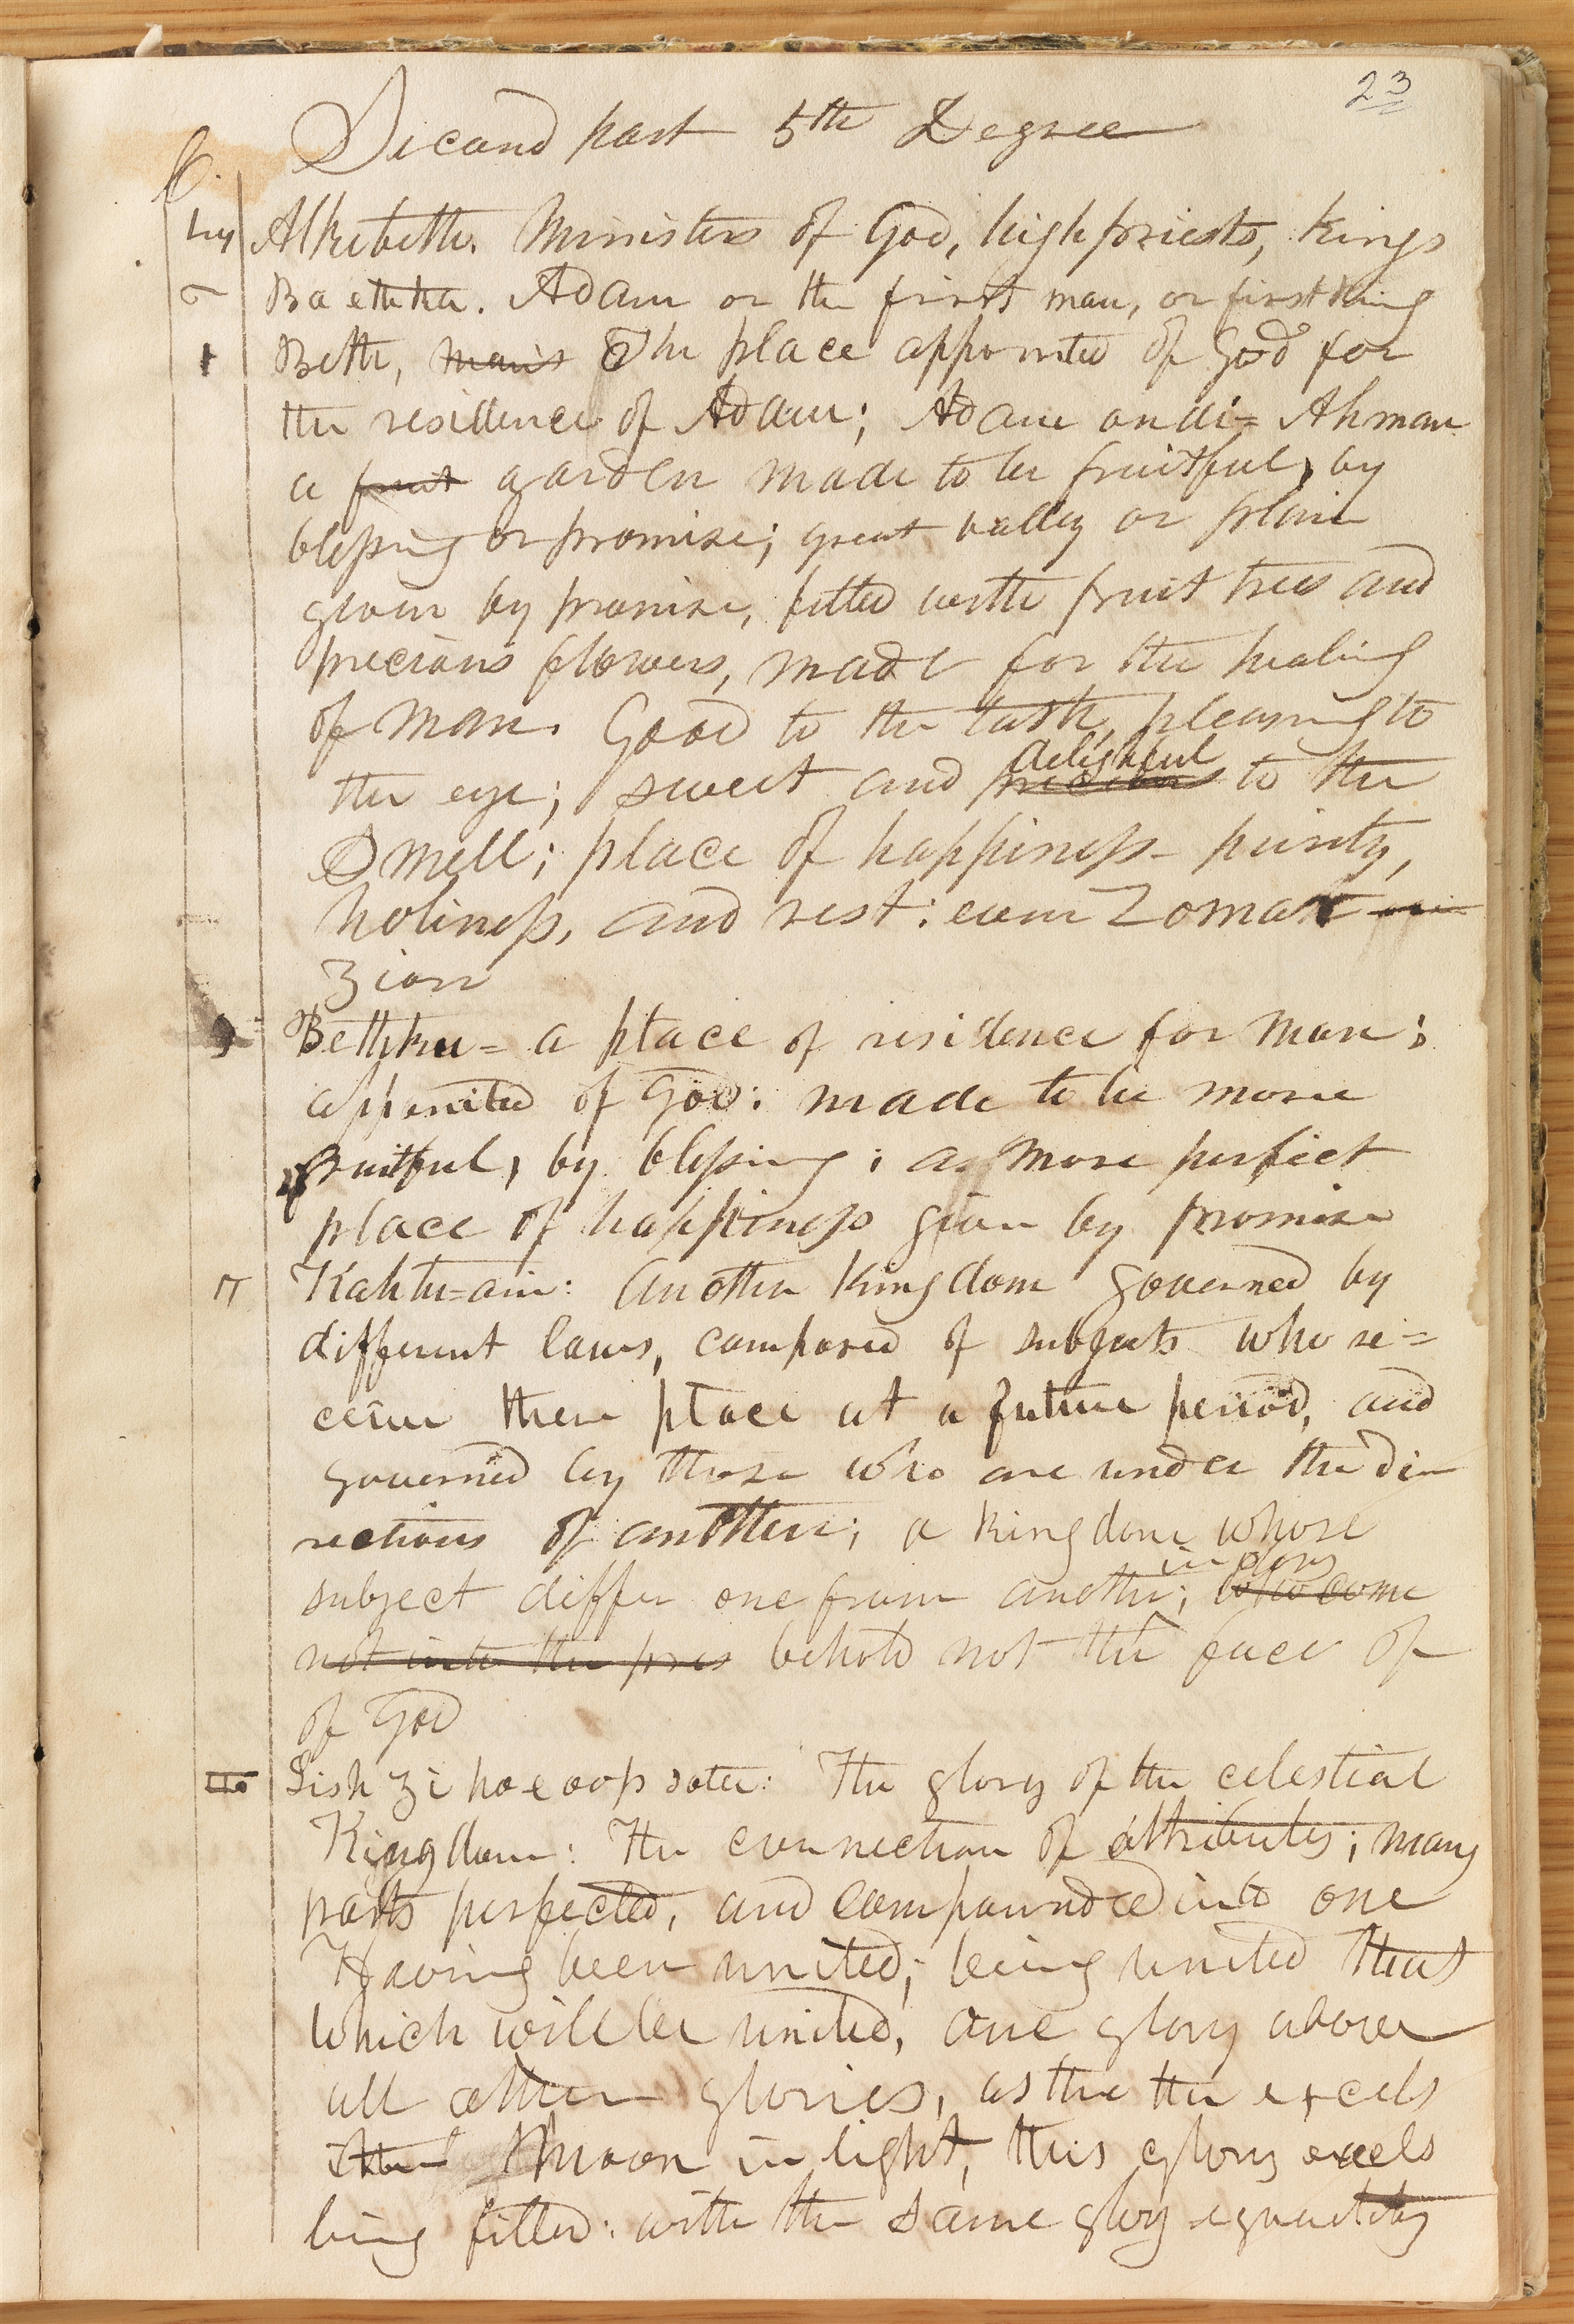 23
Second part 5th Degree
Alkebeth. Ministers of God, highpriests, kings
Baethka. Adam or the first man, or first king
Beth, man's The place appointed of God for
the residence of Adam; Adam ondi= Ahman
a fruit garden made to be fruitful, by
blessing or promise; great valley or plain
given by promise, fitted with fruit trees and
precious flowers, made for the healing
of man. Good to the taste, pleasing to
the eye; sweet and precious delightful to the
smell; place of happiness– purity,
holiness, and rest: even Zomar
Zion
Bethku= a place of residence for man;
appointed of God: made to be more
fruitful, by blessing; a more perfect
place of happiness given by promise
Kahtu=ain: Another kingdom governed by
different laws, composed of subjects who re=
ceive there place at a future period, and
governed by those who are under the di
rections of another; a kingdom whose
subject differ one from another in glory; who come
not into the pres behold not the face of
of God
Lish zi hoe oop sote: The glory of the celestial
Kingdom: The connection of attributes; many
parts perfected, and compounded into one
Having been united; being united that
which will be united, one glory above
all other glories, as the the excels
the moon in light, this glory excels
being filled: with the same glory equality